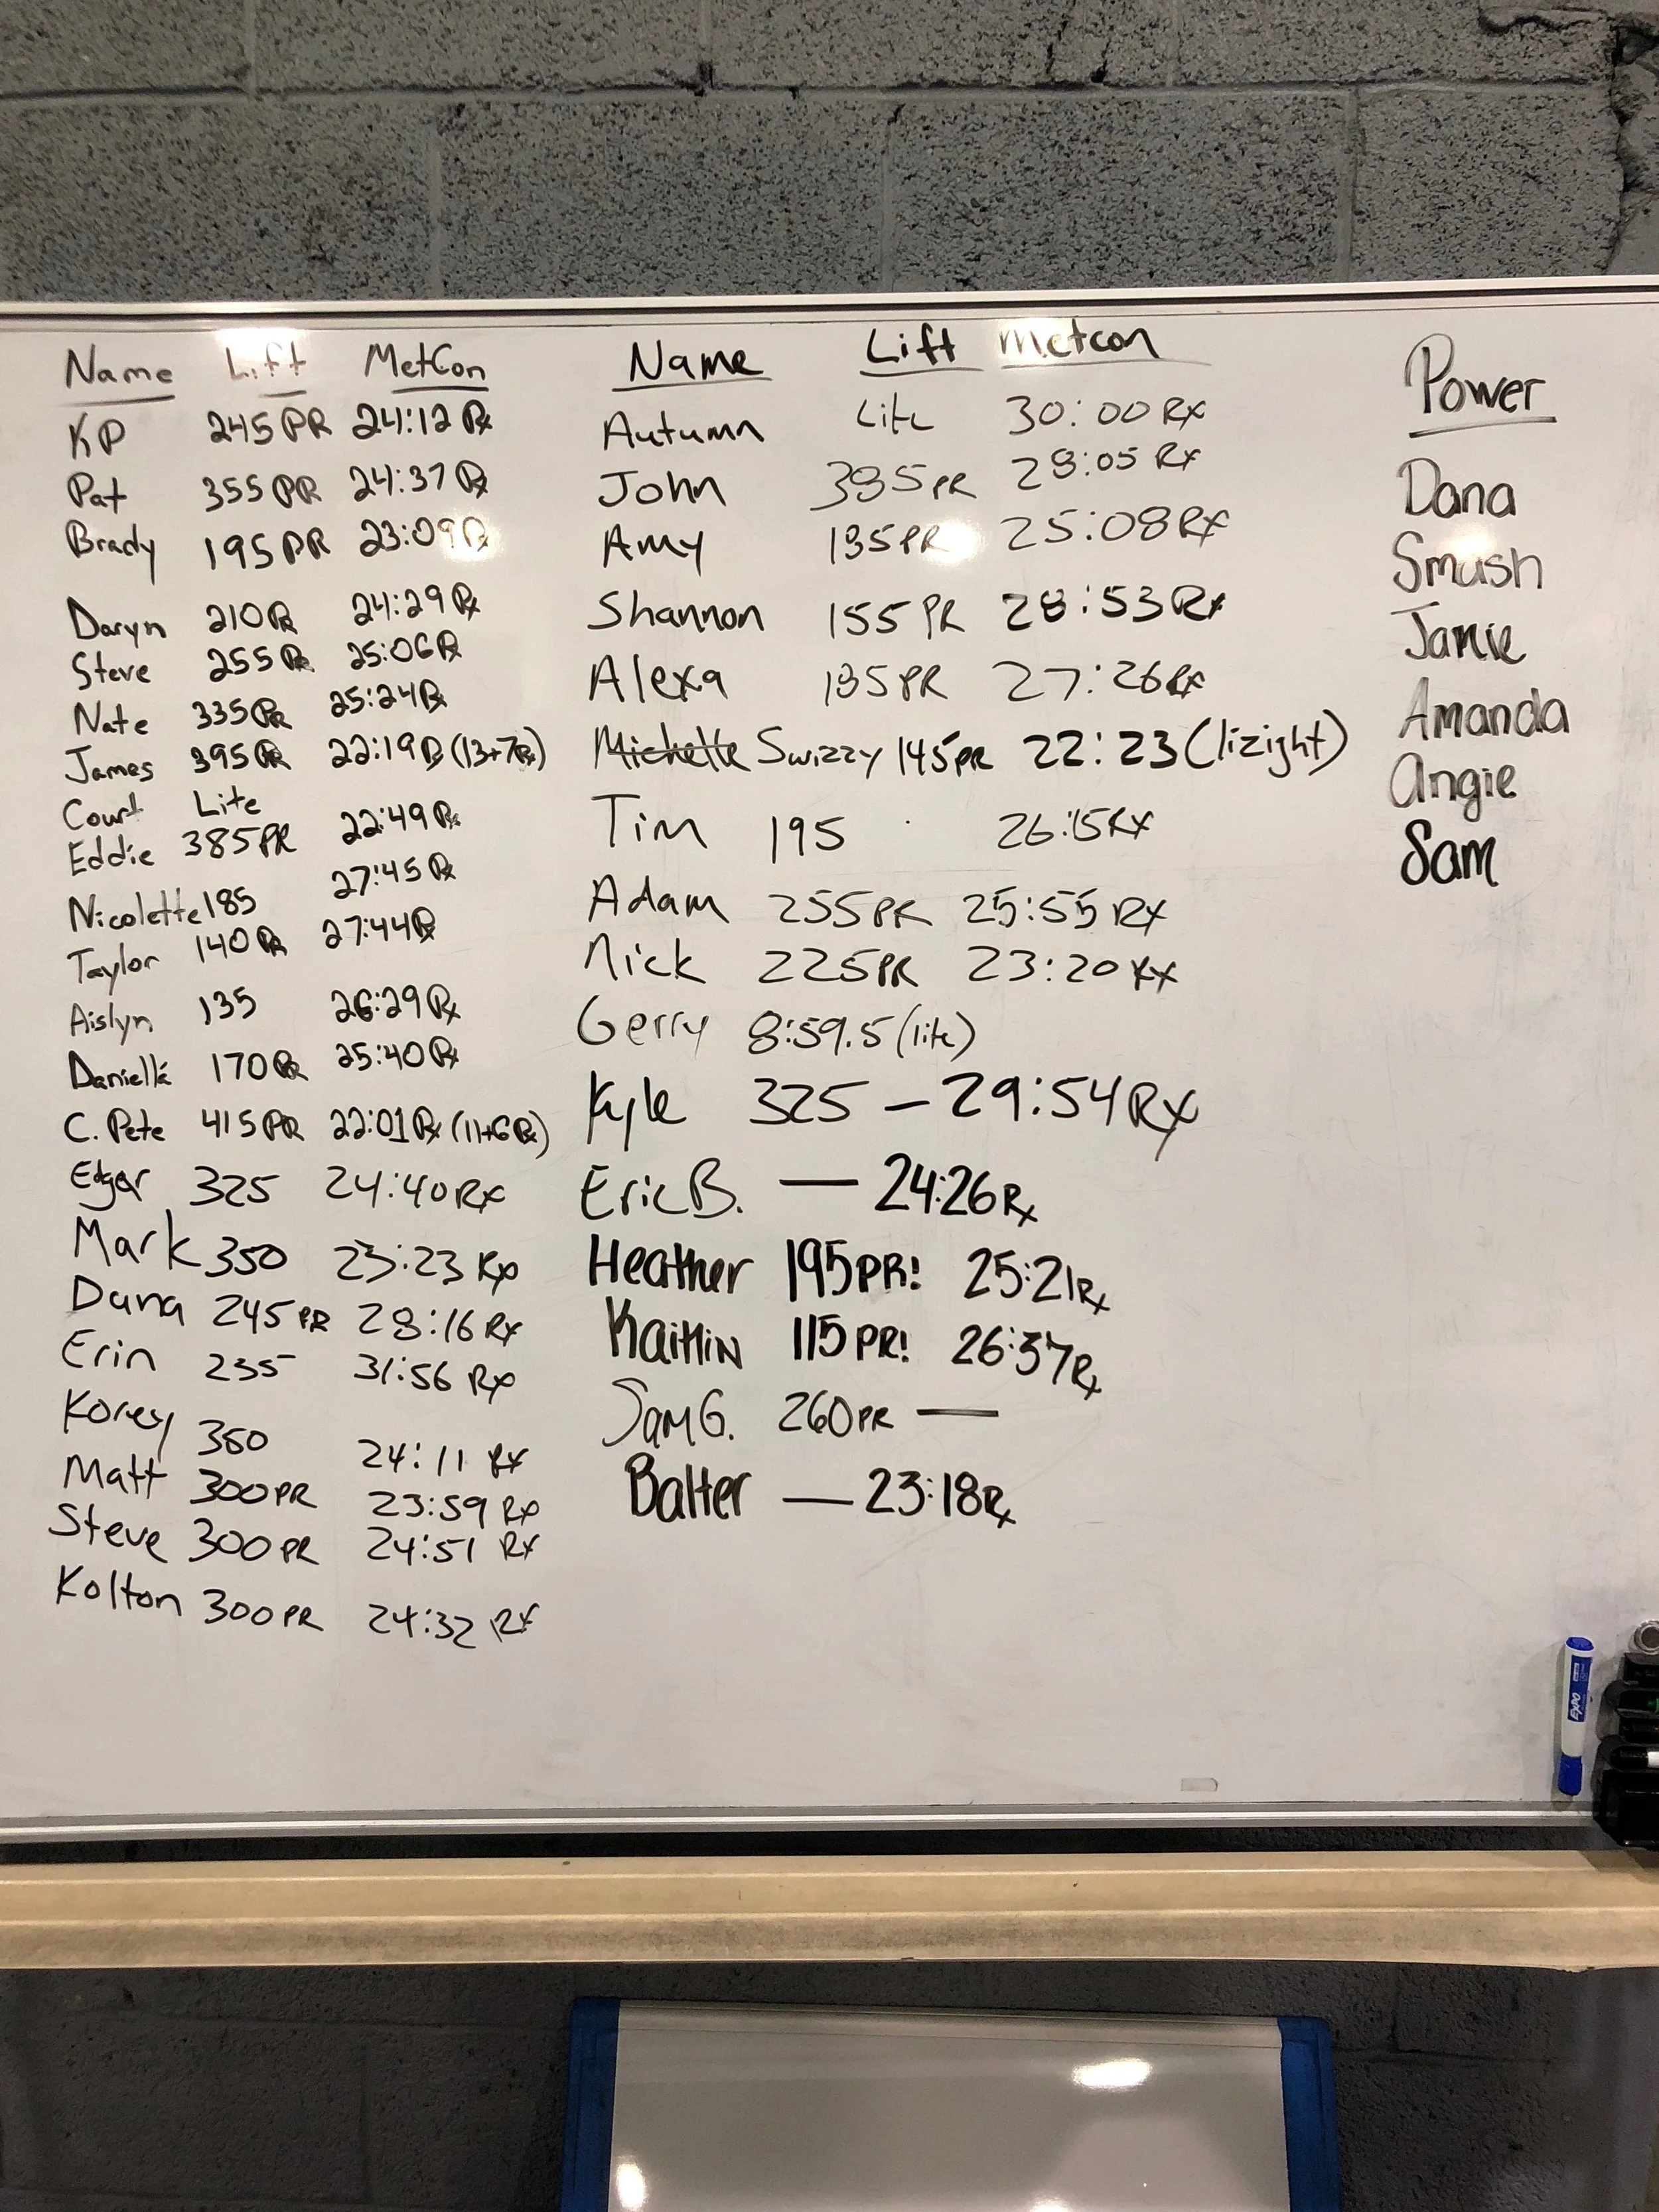 Name Lift MetCon
KP 245 PR 24:12 Rx
Pat 355 PR 24:37 Rx
Brady 195 PR 23:09 Rx
Daryn 210 PR 24:29 Rx
Steve 255 PR 25:06 Rx
Nate 335 PR 25:24 Rx
James 395 PR 22:19 Rx (13+7Rx)
Court Lite
Eddie 385 PR 22:49 Rx
Nicolette 185 27:45 Rx
Taylor 140 PR 27:44 Rx
Aislyn 135 26:29 Rx
Daniella 170 PR 25:40 Rx
C. Pete 415 PR 22:01 Rx (11+6Rx)
Edgar 325 24:40 Rx
Mark 350 23:23 Rx
Dana 245 PR 28:16 Rx
Erin 235 31:56 Rx
Korey 350 24:11 Rx
Matt 300 PR 23:59 Rx
Steve 300 PR 24:51 Rx
Kolton 300 PR 24:32 Rx
Name Lift Metcon
Autumn Lite 30:00 Rx
John 385 PR 28:05 Rx
Amy 135 PR 25:08 Rx
Shannon 155 PR 28:53 Rx
Alexa 135 PR 27:26 Rx
Michelle Swizzy 145 PR 22:23 (lizight)
Tim 195 26:15 Rx
Adam 255 PR 25:55 Rx
Nick 225 PR 23:20 Rx
Gerry 8:59.5 (lite)
Kyle 325 – 29:54 Rx
Eric B. — 24:26 Rx
Heather 195 PR! 25:21 Rx
Kaitlin 115 PR! 26:37 Rx
Sam G. 260 PR —
Balter — 23:18 Rx
Power
Dana
Smash
Jamie
Amanda
Angie
Sam
EXPO